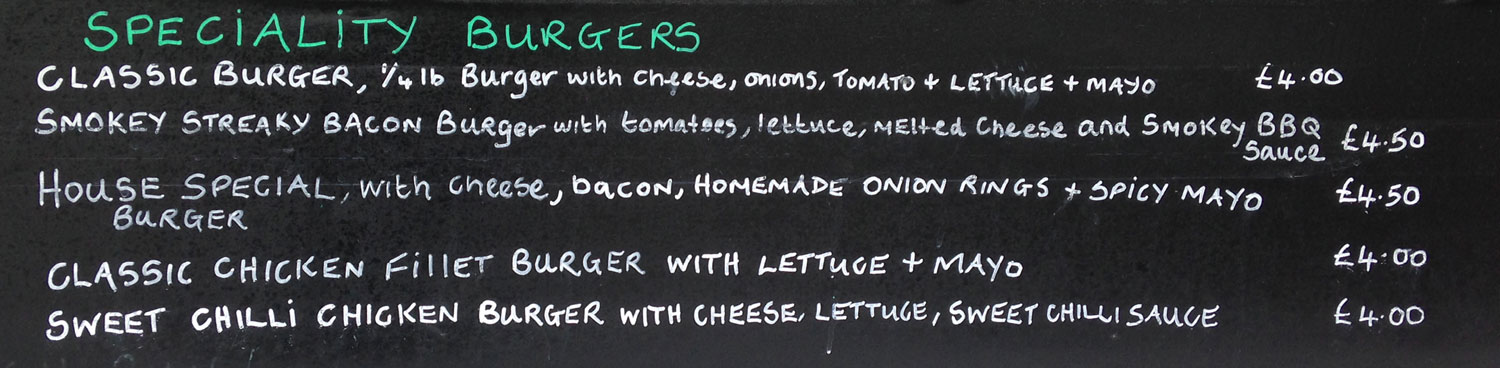 SPECIALITY BURGERS
CLASSIC BURGER, 1/4 lb Burger with cheese, onions, TOMATO + LETTUCE + MAYO £4.00
SMOKEY STREAKY BACON Burger with tomatoes, lettuce, MELted Cheese and SMOKEY BBQ Sauce £4.50
HOUSE SPECIAL, with cheese, bacon, HOMEMADE ONION RINGS + SPICY MAYO £4.50
BURGER
CLASSIC CHICKEN FillET BURGER WITH LETTUCE + MAYO £4.00
SWEET CHILLI CHICKEN BURGER WITH CHEESE, LETTUCE, SWEET CHILLI SAUCE £4.00